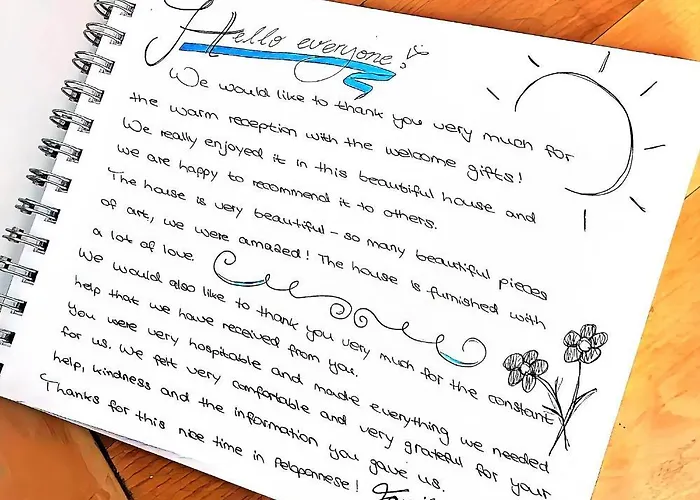 Hello everyone!
We would like to thank you very much for
the warm reception with the welcome gifts!
We really enjoyed it in this beautiful house and
we are happy to recommend it to others.
The house is very beautiful – so many beautiful pieces
of art, we were amazed! The house is furnished with
a lot of love
We would also like to thank you very much for the constant
help that we have received from you.
You were very hospitable and made everything we needed
for us. We felt very comfortable and very grateful for your
help, kindness and the information you gave us.
Thanks for this nice time in Peloponnese!